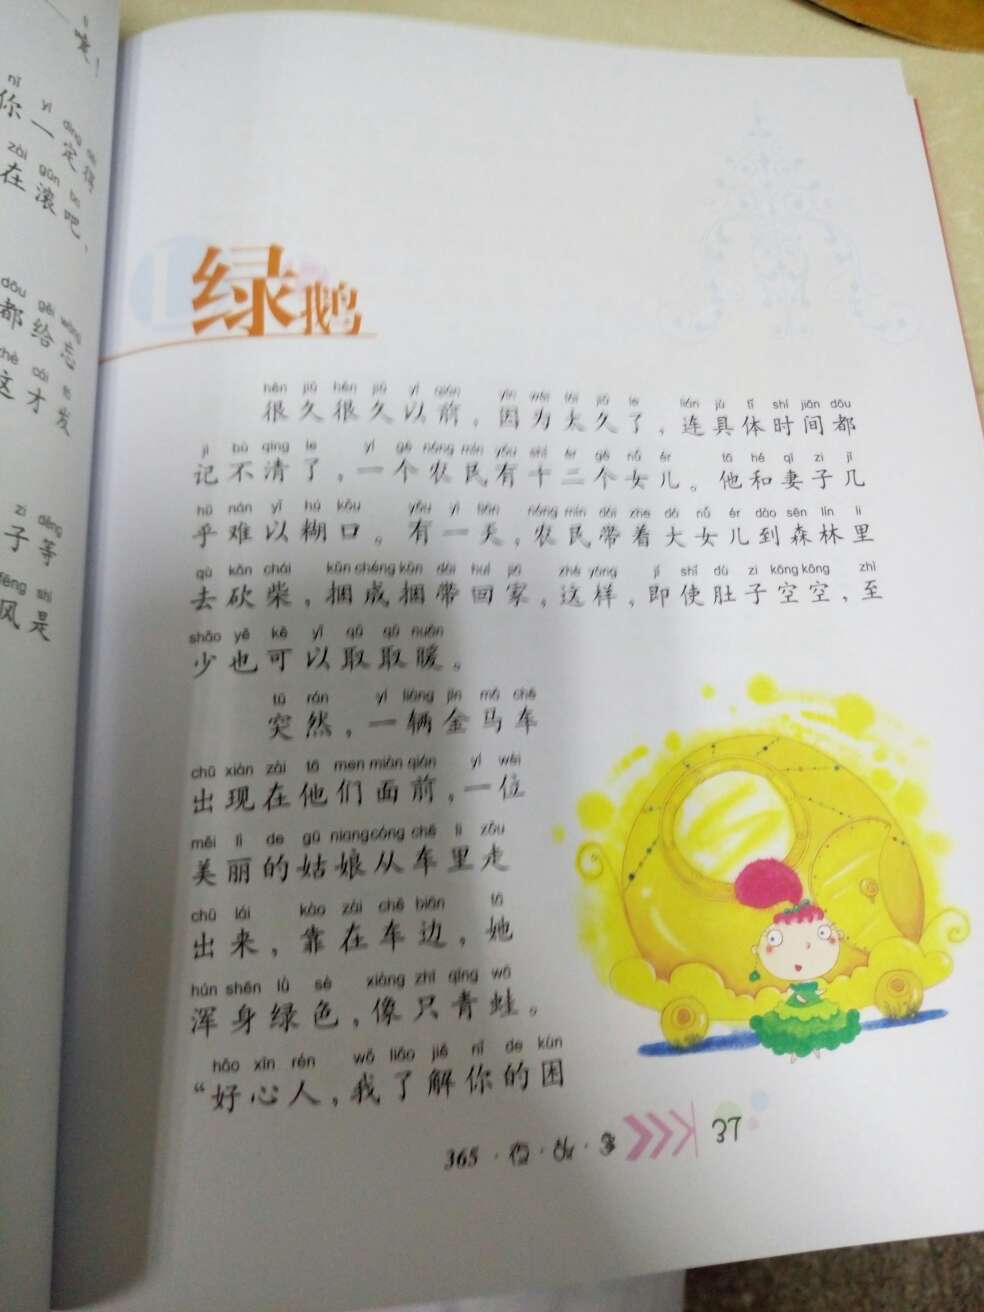 你一定得
在滚吧，
都给忘
这才发
子等
风是
绿鹅
hěn jiǔ hěn jiǔ yǐ qián yīn wèi tài jiǔ le lián jù tǐ shí jiān dōu
很久很久以前，因为太久了，连具体时间都
jì bù qīng le yí gè nóng mín yǒu shí èr gè nǚ ér tā hé qī zi jī
记不清了，一个农民有十二个女儿。他和妻子几
hū nán yǐ hú kǒu yǒu yì tiān nóng mín dài zhe dà nǚ ér dào sēn lín li
乎难以糊口。有一天，农民带着大女儿到森林里
qù kǎn chái kǔn chéng kǔn dài huí jiā zhè yàng jí shǐ dù zi kōng kōng zhì
去砍柴，捆成捆带回家，这样，即使肚子空空，至
shǎo yě kě yǐ qǔ qǔ nuǎn
少也可以取取暖。
tū rán yí liàng jīn mǎ chē
突然，一辆金马车
chū xiàn zài tā men miàn qián yí wèi
出现在他们面前，一位
měi lì de gū niang cóng chē li zǒu
美丽的姑娘从车里走
chū lái kào zài chē biān tā
出来，靠在车边，她
hún shēn lǜ sè xiàng zhī qīng wā
浑身绿色，像只青蛙。
hǎo xīn rén wǒ liǎo jiě nǐ de kùn
“好心人，我了解你的困
365·夜·故·事 37